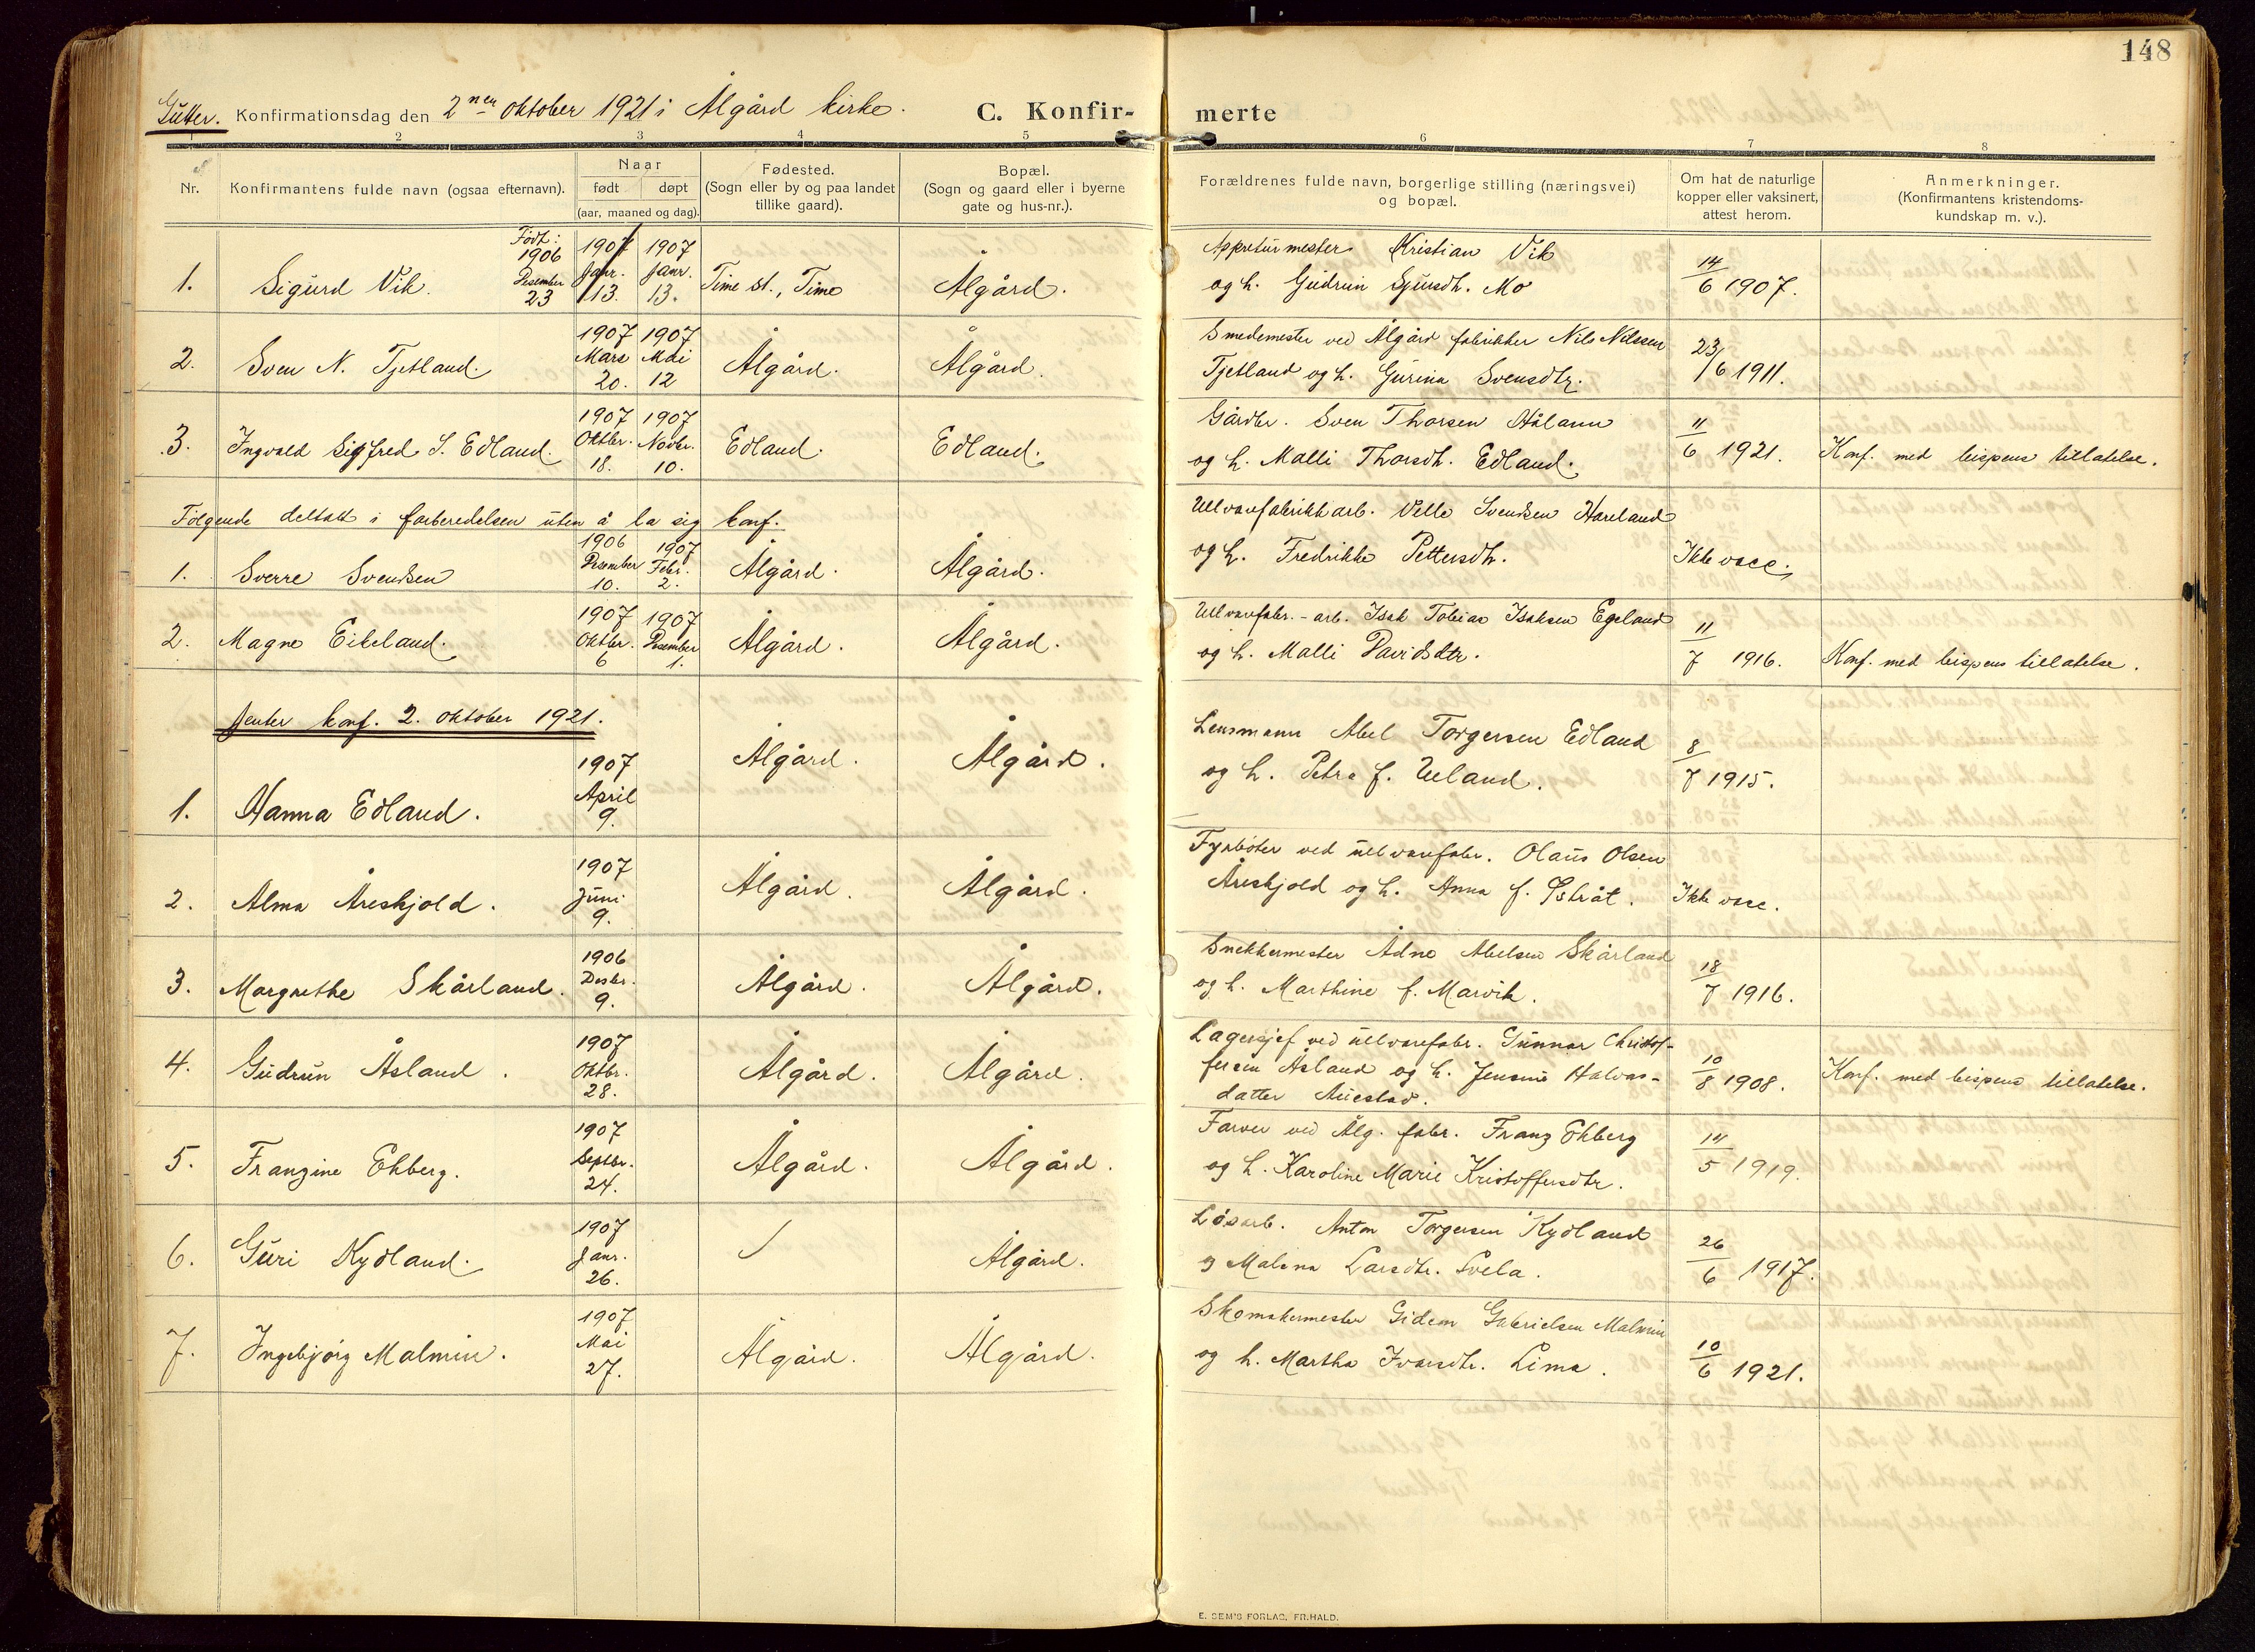 148
Gutter. Konfirmationsdag den 2nen oktober 1921 i Ålgård kirke. C. Konfir- merte
1 2 3 4 5 6 7 8
Nr. Konfirmantens fulde navn (ogsaa efternavn). Naar født døpt (aar, maaned og dag). Fødested. (Sogn eller by og paa landet tillike gaard). Bopæl. (Sogn og gaard eller i byerne gate og hus-nr.). Forældrenes fulde navn, borgerlige stilling (næringsvei) og bopæl. Om hat de naturlige kopper eller vaksinert, attest herom. Anmerkninger. (Konfirmantens kristendoms- kundskap m. v.).
1. Sigurd Vik. Født: 1906 Desember 23 1907 Janr. 13. 1907 Janr. 13. Time st., Time Ålgård. Appreturmester Kristian Vik
og h. Gudrun Sjursdtr. Mo 14/6 1907.
2. Sven N. Tjetland. 1907 Mars 20. 1907 Mai 12 Ålgård. Ålgård. Smedemester ved Ålgård fabrikker Nils Nilssen
Tjetland og h. Gurina Svensdtr. 23/6 1911.
3. Ingvald Sigfred S. Edland. 1907 Oktbr. 18. 1907 Novbr. 10. Edland. Edland. Gårdbr. Sven Thorsen Håland
og h. Malli Thorsdtr. Edland. 11/6 1921. Konf. med bispens tillatelse.
Følgende deltatt i forberedelsen uten å la sig konf.
1. Sverre Svendsen 1906 Desember 10. 1907 Febr. 2. Ålgård. Ålgård. Ullvarefabrikkarb. Velle Svendsen Hareland
og h. Fredrikke Pettersdtr. Ikke vacc.
2. Magne Eikeland. 1907 Oktbr. 6 1907 Desember 1. Ålgård. Ålgård. Ullvarefabr.-arb. Isak Tobias Isaksen Egeland
og h. Malli Davidsdtr. 11/7 1916. Konf. med bispens tillatelse.
Jenter konf. 2. oktober 1921.
1. Hanna Edland. 1907 April 9. Ålgård. Ålgård. Lensmann Abel Torgersen Edland
og h. Petra f. Ueland. 8/7 1915.
2. Alma Åreskjold. 1907 Juni 9. Ålgård. Ålgård. Fyrbøter ved ullvarefabr. Olaus Olsen
Åreskjold og h. Anna f. Østråt. Ikke vacc.
3. Margrethe Skårland. 1906 Desbr. 9. Ålgård. Ålgård. Snekkermester Ådne Abelsen Skårland
og h. Marthine f. Marvik. 18/7 1916.
4. Gudrun Åsland. 1907 Oktbr. 28. Ålgård. Ålgård. Lagersjef ved ullvarefabr. Gunnar Christof-
fersen Åsland og h. Jensine Halvos-
datter Auestad. 10/8 1908. Konf. med bispens tillatelse.
5. Franzine Ekberg. 1907 Septbr. 24. Ålgård. Ålgård. Farver ved Ålg. fabr. Franz Ekberg
og h. Karoline Marie Kristoffersdtr. 14/5 1919.
6. Guri Kydland. 1907 Janr. 26. Ålgård. Løsarb. Anton Torgersen Kydland
og Malena Larsdtr. Svela. 26/6 1917.
7. Ingebjørg Malmin. 1907 Mai 27. Ålgård. Ålgård. Skomakermester Gideon Gabrielsen Malmin
og h. Martha Ivarsdtr. Lima. 10/6 1921.
E. SEM'S FORLAG, FR.HALD.